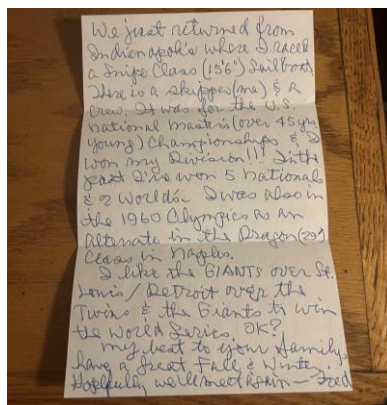 We just returned from
Indianapolis where I raced
a Snipe Class (15'6") Sailboat
There is a skipper (me) & a
crew. It was for the U.S.
national masters (over 45 yrs
young) Championships & I
won my Division!!! In the
past I've won 5 nationals
& 2 worlds. I was also in
the 1960 Olympics as an
alternate in the Dragon (29')
Class in Naples.
I like the GIANTS over St.
Louis / Detroit over the
Twins & the Giants to win
the World Series, OK?
my best to your family,
have a great Fall & Winter,
Hopefully we'll meet again —